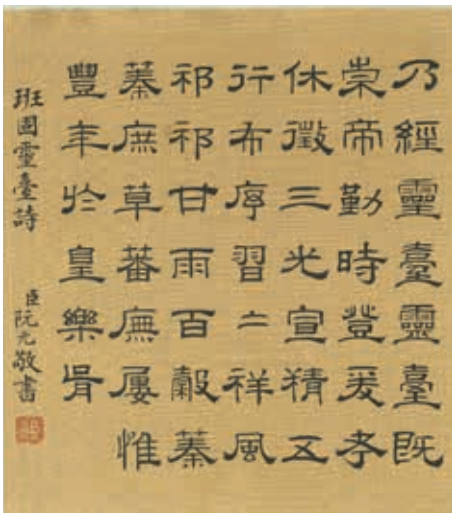 乃經靈臺靈臺既
崇帝勤時登爰考
休徵三光宣精五
行布序習二祥風
祁祁甘雨百穀蓁
蓁庶草蕃廡屢惟
豐年於皇樂胥
班固靈臺詩
臣阮元敬書